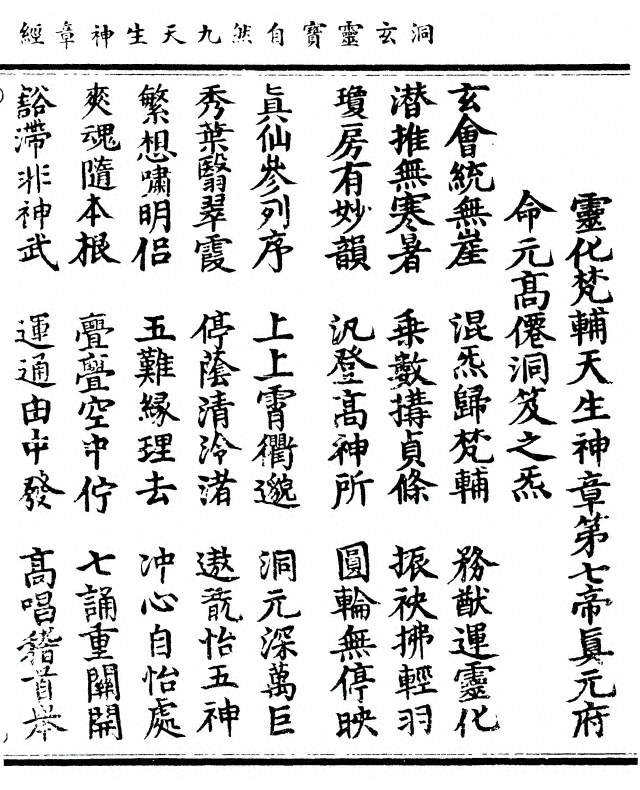 洞玄靈寶自然九天生神章經
靈化梵輔天生神章第七帝眞元府
命元髙僊洞笈之炁
玄會統無崖　混炁歸梵輔　務猷運靈化
潜推無寒暑　乗數搆貞條　振袂拂輕羽
瓊房有妙韻　汎登髙神所　圓輪無停映
眞仙參列序　上上霄衢邈　洞元深萬巨
秀葉翳翠霞　停蔭清泠渚　遨翫怡五神
繁想嘯明侣　五難縁理去　冲心自怡處
爽魂隨本根　亹亹空中佇　七誦重關開
豁滯非神武　運通由中發　髙唱稽首舉